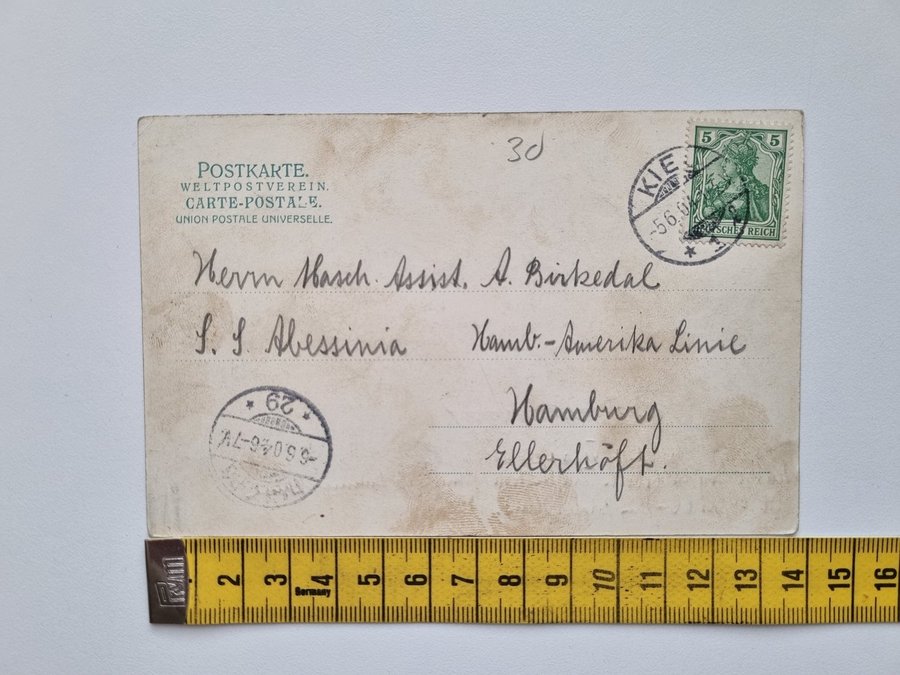 3d
POSTKARTE.
WELTPOSTVEREIN.
CARTE-POSTALE.
UNION POSTALE UNIVERSELLE.
5 5
DEUTSCHES REICH
KIEL
-5.6.04
Herrn Masch. Assist. A. Birkedal
S. S Abessinia Hamb.-Amerika Linie
Hamburg
Ellerhöft.
* 29 *
-6.6.04.6-7V.
2 3 4 5 6 7 8 9 10 11 12 13 14 15 16
Germany